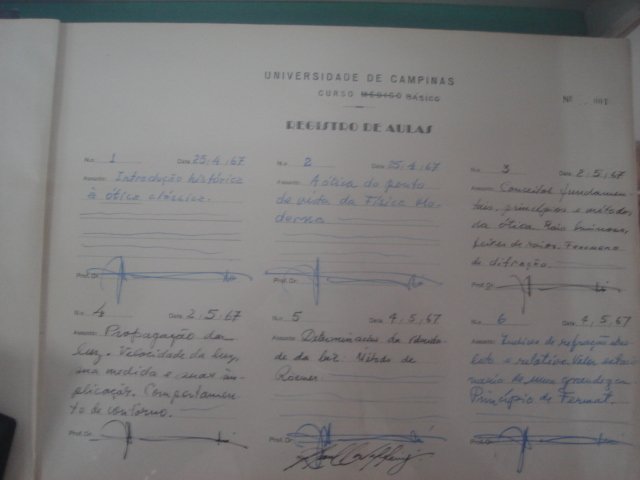 UNIVERSIDADE DE CAMPINAS
CURSO MÉDICO BÁSICO
Nº
REGISTRO DE AULAS
N.o 1 Data 25,4,67
Assunto: Introdução histórica
à ótica clássica.
Prof. Dr.
N.o 2 Data 25,4,67
Assunto: A ótica do ponto
de vista da Física Mo-
derna
Prof. Dr.
N.o 3 Data 2,5,67
Assunto: fundamen-
tais, princípios e métodos
da ótica. Raio luminoso,
feixes de raios. Fenomeno
de difração.
Prof. Dr.
N.o 4 Data 2,5,67
Assunto: Propagação da
luz. Velocidade da luz,
sua medida e suas im-
plicação. Comportamen-
to de contorno.
Prof. Dr.
N.o 5 Data 4,5,67
Assunto: da
de da luz. Método de
Roemer.
Prof. Dr.
N.o 6 Data 4,5,67
Assunto: Indices de refração
e relativo. Valor
de
Principio de Fermat.
Prof. Dr.